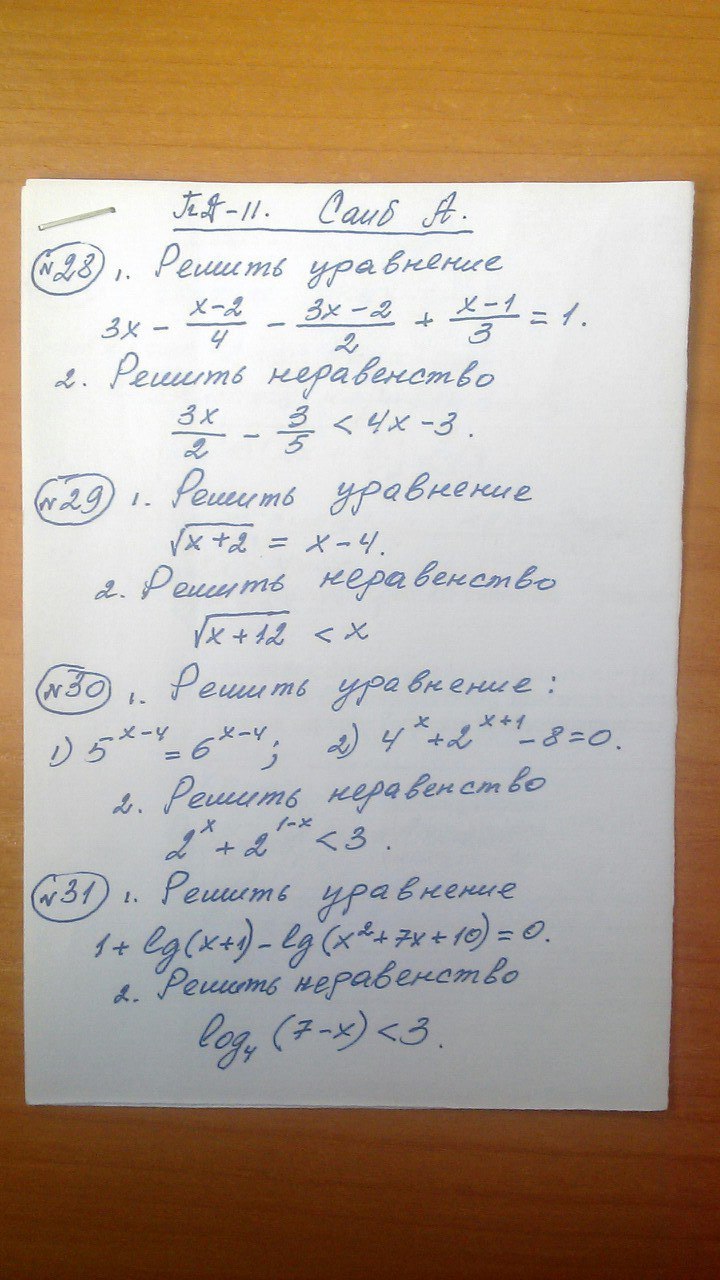 ПД-11. Саиб А.
№28 1. Решить уравнение
3x - \frac{x-2}{4} - \frac{3x-2}{2} + \frac{x-1}{3} = 1.
2. Решить неравенство
\frac{3x}{2} - \frac{3}{5} < 4x - 3.
№29 1. Решить уравнение
\sqrt{x+2} = x - 4.
2. Решить неравенство
\sqrt{x+12} < x
№30 1. Решить уравнение:
1) 5^{x-4} = 6^{x-4}; 2) 4^x + 2^{x+1} - 8 = 0.
2. Решить неравенство
2^x + 2^{1-x} < 3.
№31 1. Решить уравнение
1 + lg(x+1) - lg(x^2 + 7x + 10) = 0.
2. Решить неравенство
log_4 (7-x) < 3.